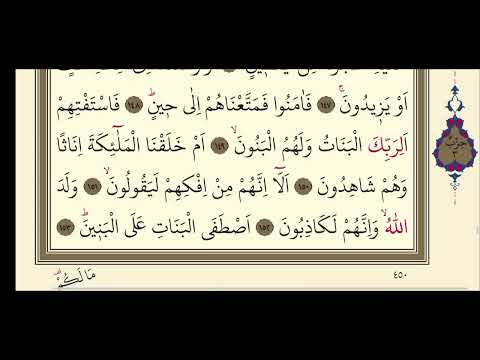 اَوْ يَزٖيدُونَۚ ١٤٧ فَاٰمَنُوا فَمَتَّعْنَاهُمْ اِلٰى حٖينٍۜ ١٤٨ فَاسْتَفْتِهِمْ
اَلِرَبِّكَ الْبَنَاتُ وَلَهُمُ الْبَنُونَۙ ١٤٩ اَمْ خَلَقْنَا الْمَلٰٓئِكَةَ اِنَاثًا
وَهُمْ شَاهِدُونَ ١٥٠ اَلَٓا اِنَّهُمْ مِنْ اِفْكِهِمْ لَيَقُولُونَۙ ١٥١ وَلَدَ
اللّٰهُۙ وَاِنَّهُمْ لَكَاذِبُونَ ١٥٢ اَصْطَفَى الْبَنَاتِ عَلَى الْبَنٖينَۜ ١٥٣
٤٥٠
مَالَكُمْ
حزب